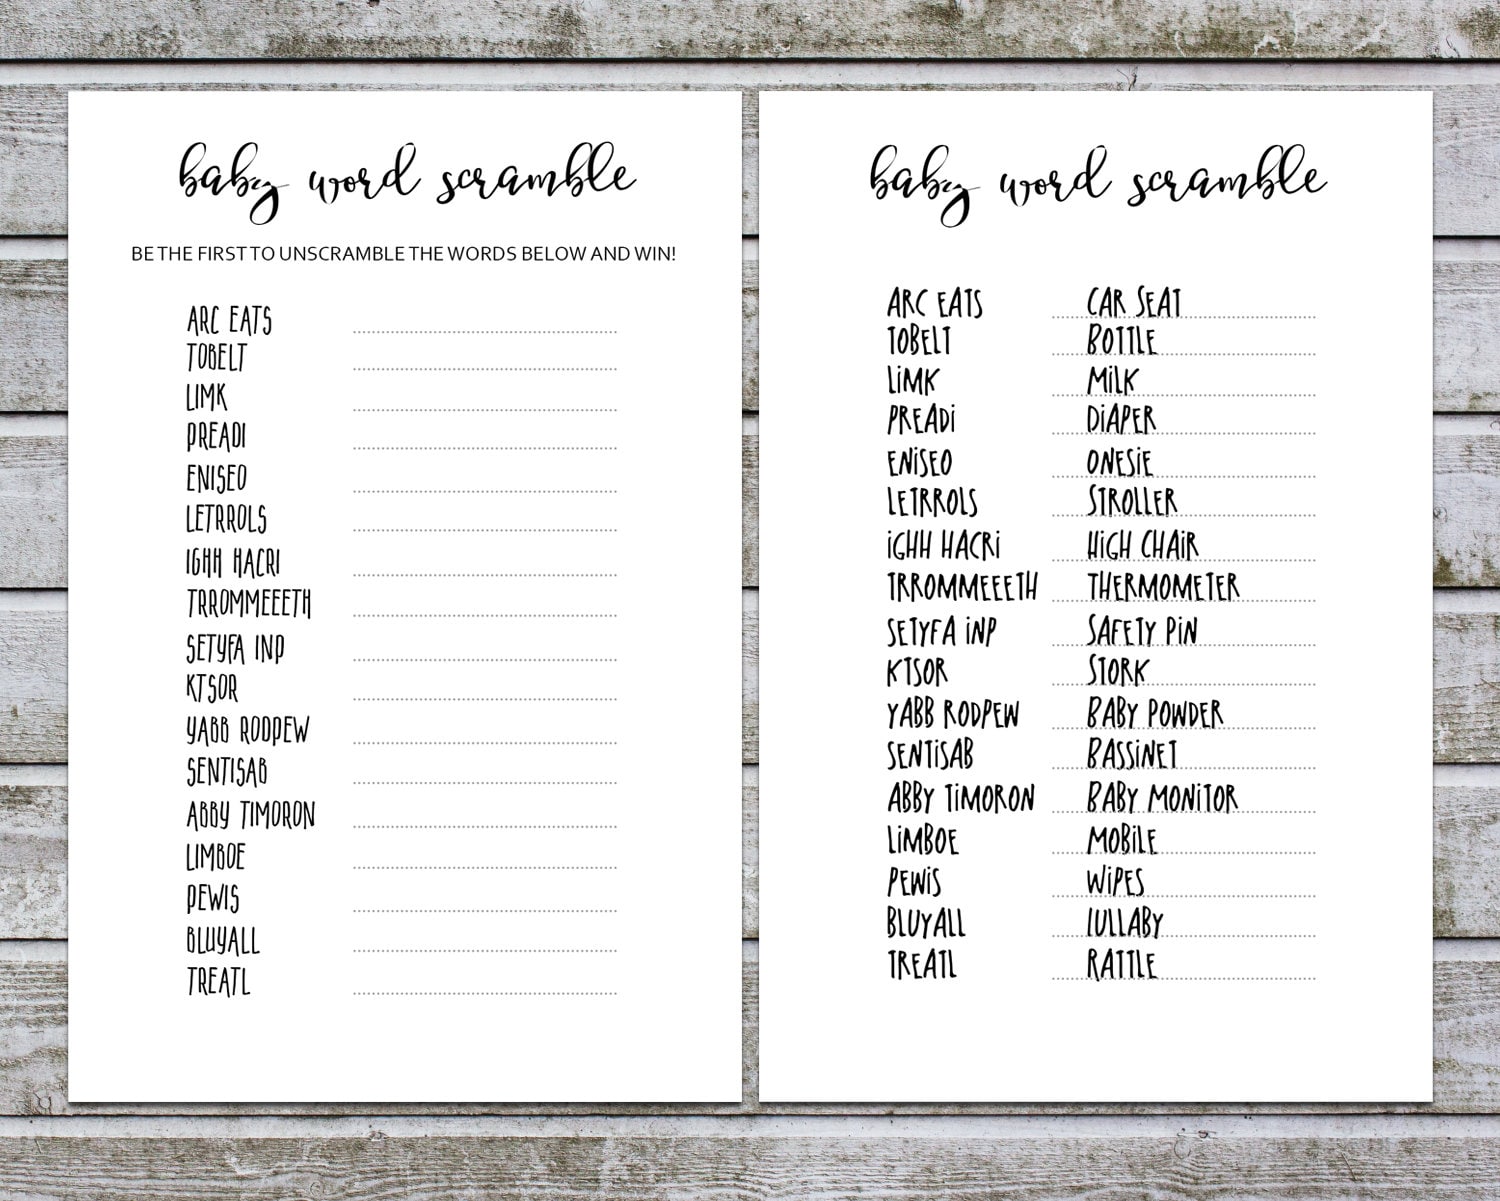 baby word scramble
BE THE FIRST TO UNSCRAMBLE THE WORDS BELOW AND WIN!
ARC EATS
TOBELT
LIMK
PREADI
ENISEO
LETRROLS
IGHH HACRI
TRROMMEEETH
SETYFA INP
KTSOR
YABB RODPEW
SENTISAB
ABBY TIMORON
LIMBOE
PEWIS
BLUYALL
TREATL
baby word scramble
ARC EATS CAR SEAT
TOBELT BOTTLE
LiMK MiLK
PREADi DiAPER
ENiSEO ONESiE
LETRROLS STROLLER
iGHH HACRi HiGH CHAiR
TRROMMEEETH THERMOMETER
SETYFA iNP SAFETY PiN
KTSOR STORK
YABB RODPEW BABY POWDER
SENTiSAB BASSiNET
ABBY TiMORON BABY MONiTOR
LiMBOE MOBiLE
PEWiS WiPES
BLUYALL LULLABY
TREATL RATTLE